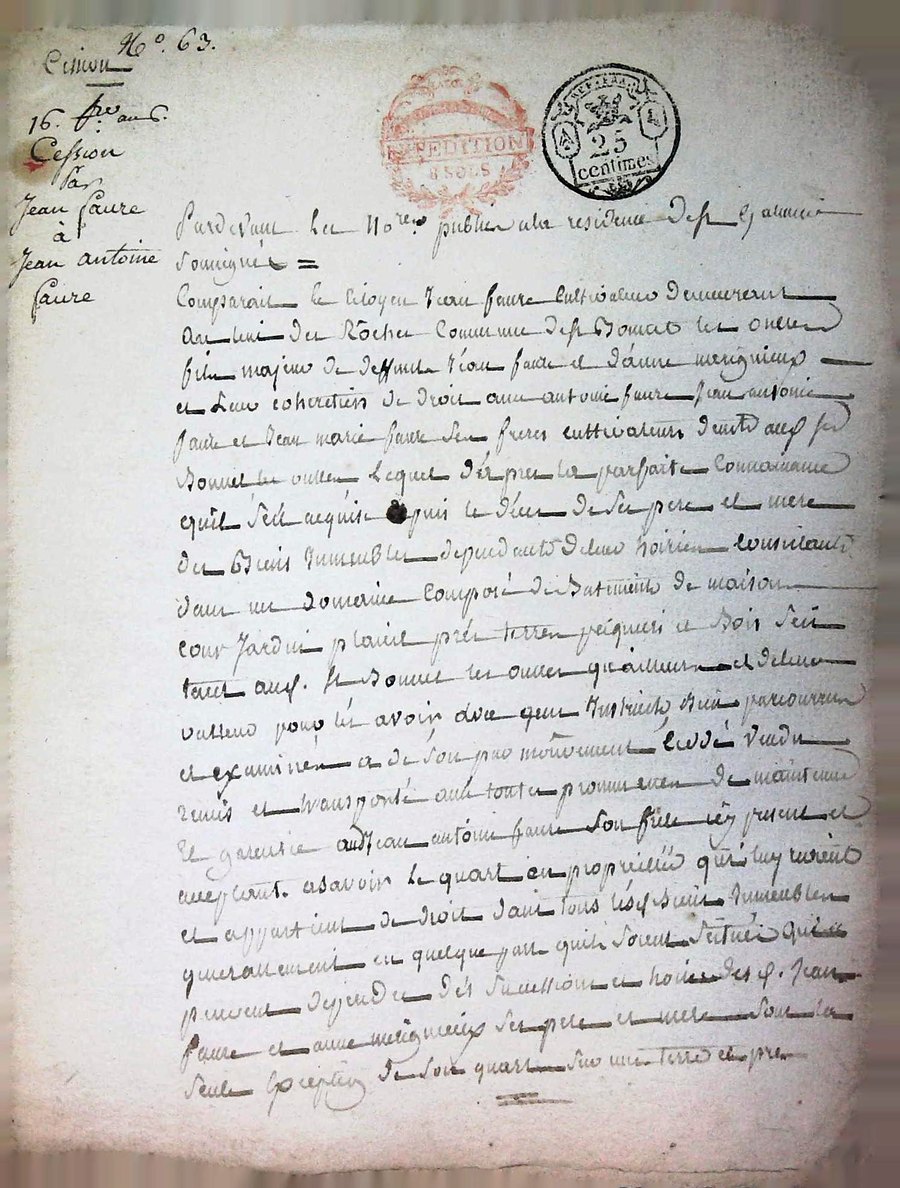 N.° 63.
Cession
16. fre. an 6.
Cession
Par
Jean faure
à
Jean antoine
faure
EXPEDITION
8 SOLS
REP. FRA.
25
centimes
Pardevant les Nores. publics a la residence de st Galmier
Soussignés =
Comparait le Citoyen Jean faure Cultivateur Demeurant
Au lieu du Rocher Commune de st Bonnet les oulles
fils majeur de deffunts Jean faure et d'anne merignieux
et Leur coheretier de Droit avec antoine faure Jean antoine
faure et Jean marie faure Ses freres cultivateurs audt. st
Bonnet les oulles Lequel d'après la parfaite Connaissance
quil S'est acquise Depuis le décès de Ses pere et mere
des Biens Immeubles dependants de leur hoirie Consistants
dans un domaine Composé de Batiments de maison
cour Jardin prés terres et Bois Scis
tant aud. st Bonnet les oulles qu'ailleurs et de leur
valleur pour les avoir avec gens Instruits Bien parcourru
et examinés a de Son pur mouvement Cédé Vendu
remis et transporté avec toutes promesses de maintenue
Et garentie audt Jean antoine faure Son frere icy present et
acceptant. asavoir Le quart en propriétté qui luy revient
et appartient de droit dans tous lesd. Biens Immeubles
generallement en quelque part quils Soient Scitués Qui
peuvent dependre des Successions et hoiries desd. Jean
faure et anne merignieux Ses pere et mere Sous la
Seule Exception de Son quart Sur une terre et pré